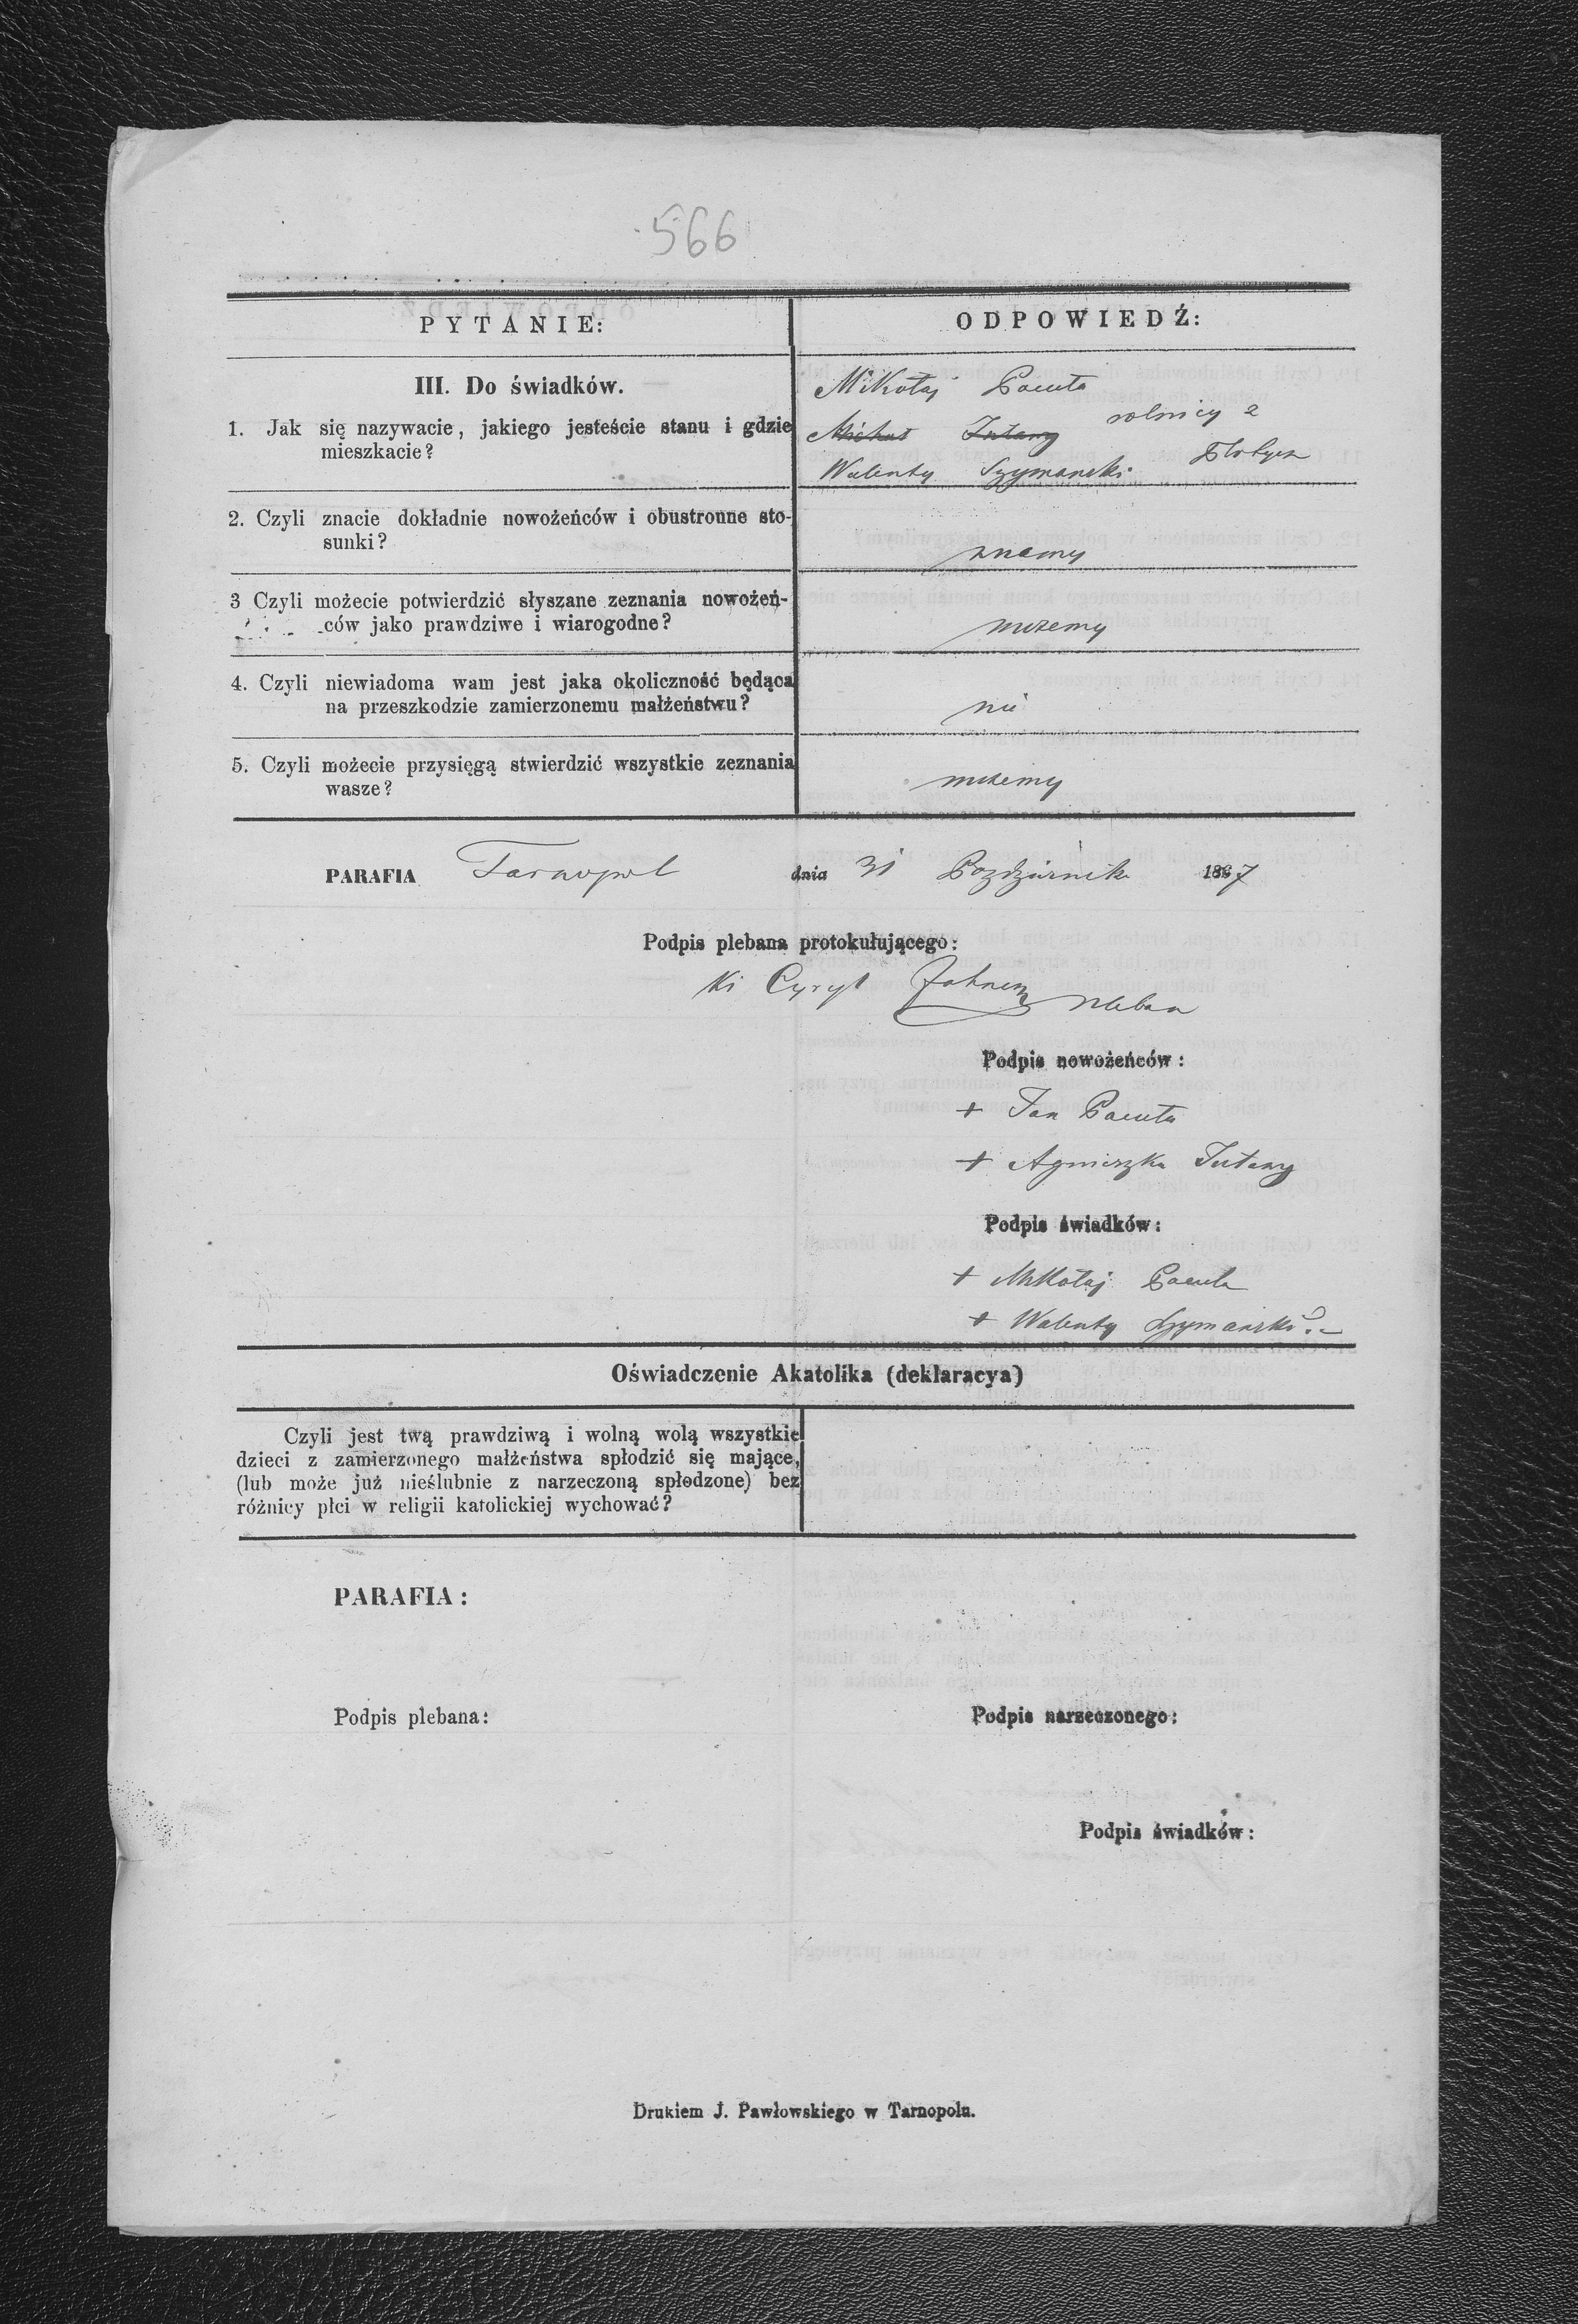 566
PYTANIE:
ODPOWIEDŹ:
III. Do świadków.
1. Jak się nazywacie, jakiego jesteście stanu i gdzie
mieszkacie?
Mikołaj Pacuła
rolnicy z
Michał Tutany
Płotycz
Walenty Szymanski
2. Czyli znacie dokładnie nowożeńców i obustronne sto-
sunki?
znamy
3 Czyli możecie potwierdzić słyszane zeznania nowożeń-
ców jako prawdziwe i wiarogodne?
możemy
4. Czyli niewiadoma wam jest jaka okoliczność będąca
na przeszkodzie zamierzonemu małżeństwu?
nie
5. Czyli możecie przysięgą stwierdzić wszystkie zeznania
wasze?
możemy
PARAFIA Tarnopol dnia 31 Pozdziernika 1887
Podpis plebana protokułującego:
Cyryl pleban
Podpis nowożeńców:
+ Jan Pacuła
+ Agnieszka Tutany
Podpis świadków:
+ Mikołaj Pacuła
+ Walenty Szymanski
Oświadczenie Akatolika (deklaracya)
Czyli jest twą prawdziwą i wolną wolą wszystkie
dzieci z zamierzonego małżeństwa spłodzić się mające,
(lub może już nieślubnie z narzeczoną spłodzone) bez
różnicy płci w religii katolickiej wychować?
PARAFIA:
Podpis plebana:
Podpis narzeczonego:
Podpis świadków:
Drukiem J. Pawłowskiego w Tarnopolu.